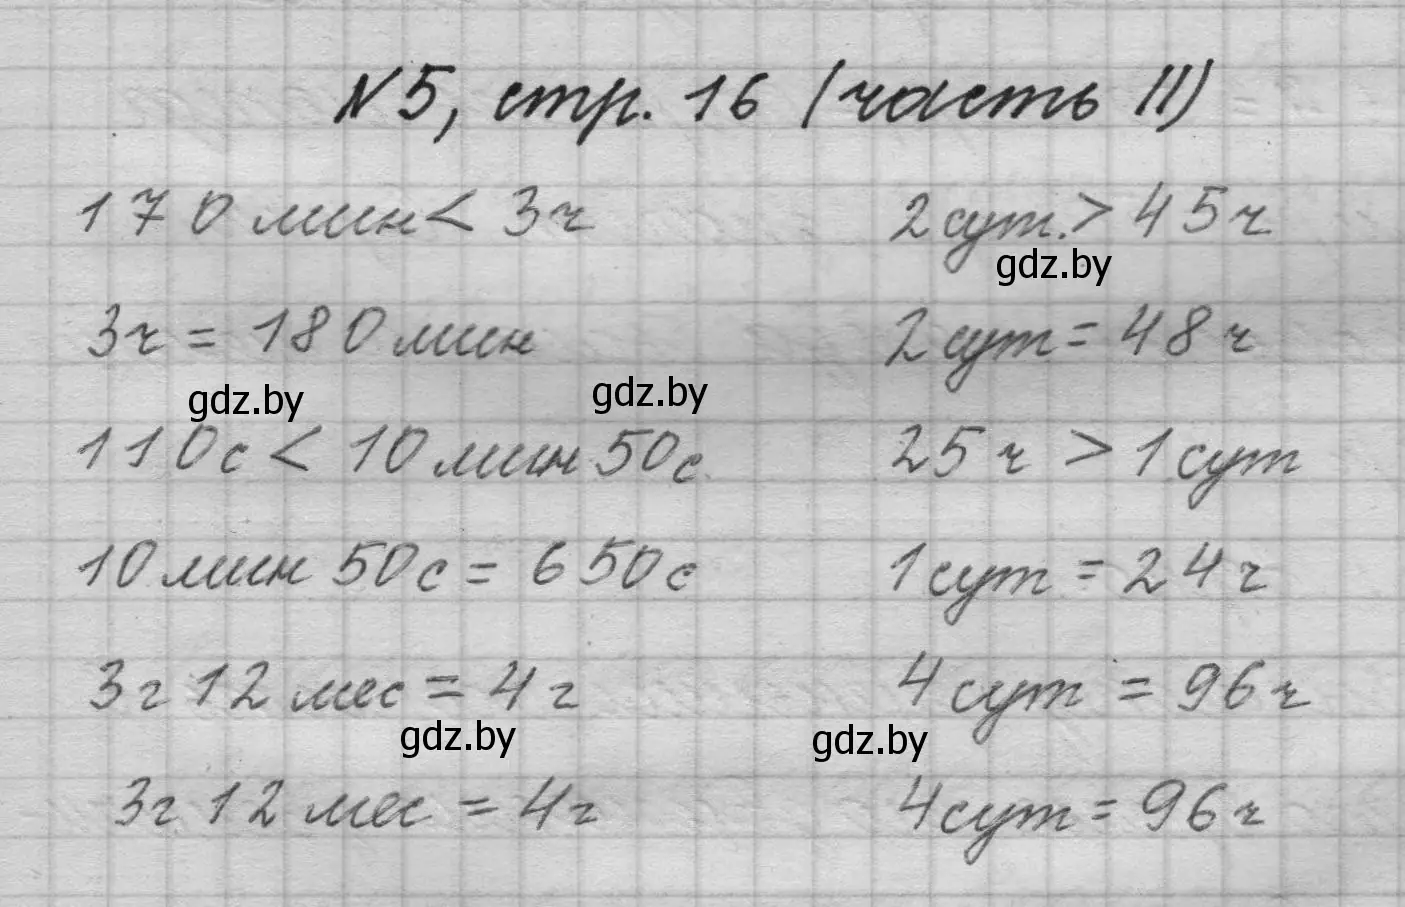 №5, стр. 16 (часть II)
170 мин < 3ч 2 сут. > 45ч
gdz.by
3ч = 180 мин 2 сут = 48 ч
gdz.by gdz.by
110с < 10 мин 50с 25 ч > 1 сут
10 мин 50с = 650с 1 сут = 24 ч
3г 12 мес = 4г 4 сут = 96 ч
gdz.by gdz.by
3г 12 мес = 4г 4 сут = 96 ч